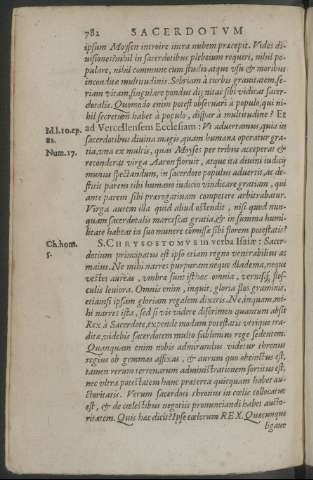 782 SACERDOTVM
ipsum Moysen introire intra nubem præcepit. Vides di-
uisiones: nihil in sacerdotibus plebeium requiri, nihil po-
pulare, nihil commune cum studio atque vsu & moribus
inconditæ multitudinis. Sobriam à turbis grauitatem, se-
riam vitam, singulare pondus dignitas sibi vindicat sacer-
doralis. Quomodo enim potest obseruari à populo, qui ni-
hil secretum habet à populo, dispar à multitudine? Et
M.l.10.ep. ad Vercellensem Ecclesiam: Vt aduertamus, quia in
82. sacerdotibus diuina magis, quam humana operatur gra-
Num.17. tia, vna ex multis, quas Moyses per tribus acceperat &
reconderat virga Aaron floruit, atque ita diuini iudicij
munus spectandum, in sacerdote populus aduertit, ac de-
stitit parem sibi humano iudicio vindicare gratiam, qui
ante parem sibi prærogatiuam competere arbitrabatur.
Virga autem illa quid aliud ostendit, nisi quod nun-
quam sacerdotalis marcescat gratia, & in summa humi-
litate habeat in suo munere commissæ sibi florem potestatis?
Ch.hom. S. CHRYSOSTOMVS in verba Isaiæ: Sacer-
5. dotium principatus est ipso etiam regno venerabilius ac
maius. Ne mihi narres purpuram neque diadema, neque
vestes aureas, vmbræ sunt isthæc omnia, vernisque flos-
culis leuiora. Omnis enim, inquit, gloria flos graminis,
etiamsi ipsam gloriam regalem dixeris. Ne, inquam, mi-
hi narres ista, sed si vis videre discrimen quantum absit
Rex à Sacerdote, expende modum potestatis vtrique tra-
ditæ, videbis sacerdotem multo sublimius rege sedentem.
Quanquam enim nobis admirandus videtur thronus
regius ob gemmas affixas, & aurum quo obcinctus est,
tamen rerum terrenarum administrationem sortitus est,
nec vltra potestatem hanc præterea quicquam habet au-
thoritatis. Verum sacerdoti thronus in cœlis collocatus
est, & de cœlestibus negotiis pronunciandi habet aucto-
ritatem. Quis hæc dicit? Ipse cœlorum REX. Quæcunque
ligaue